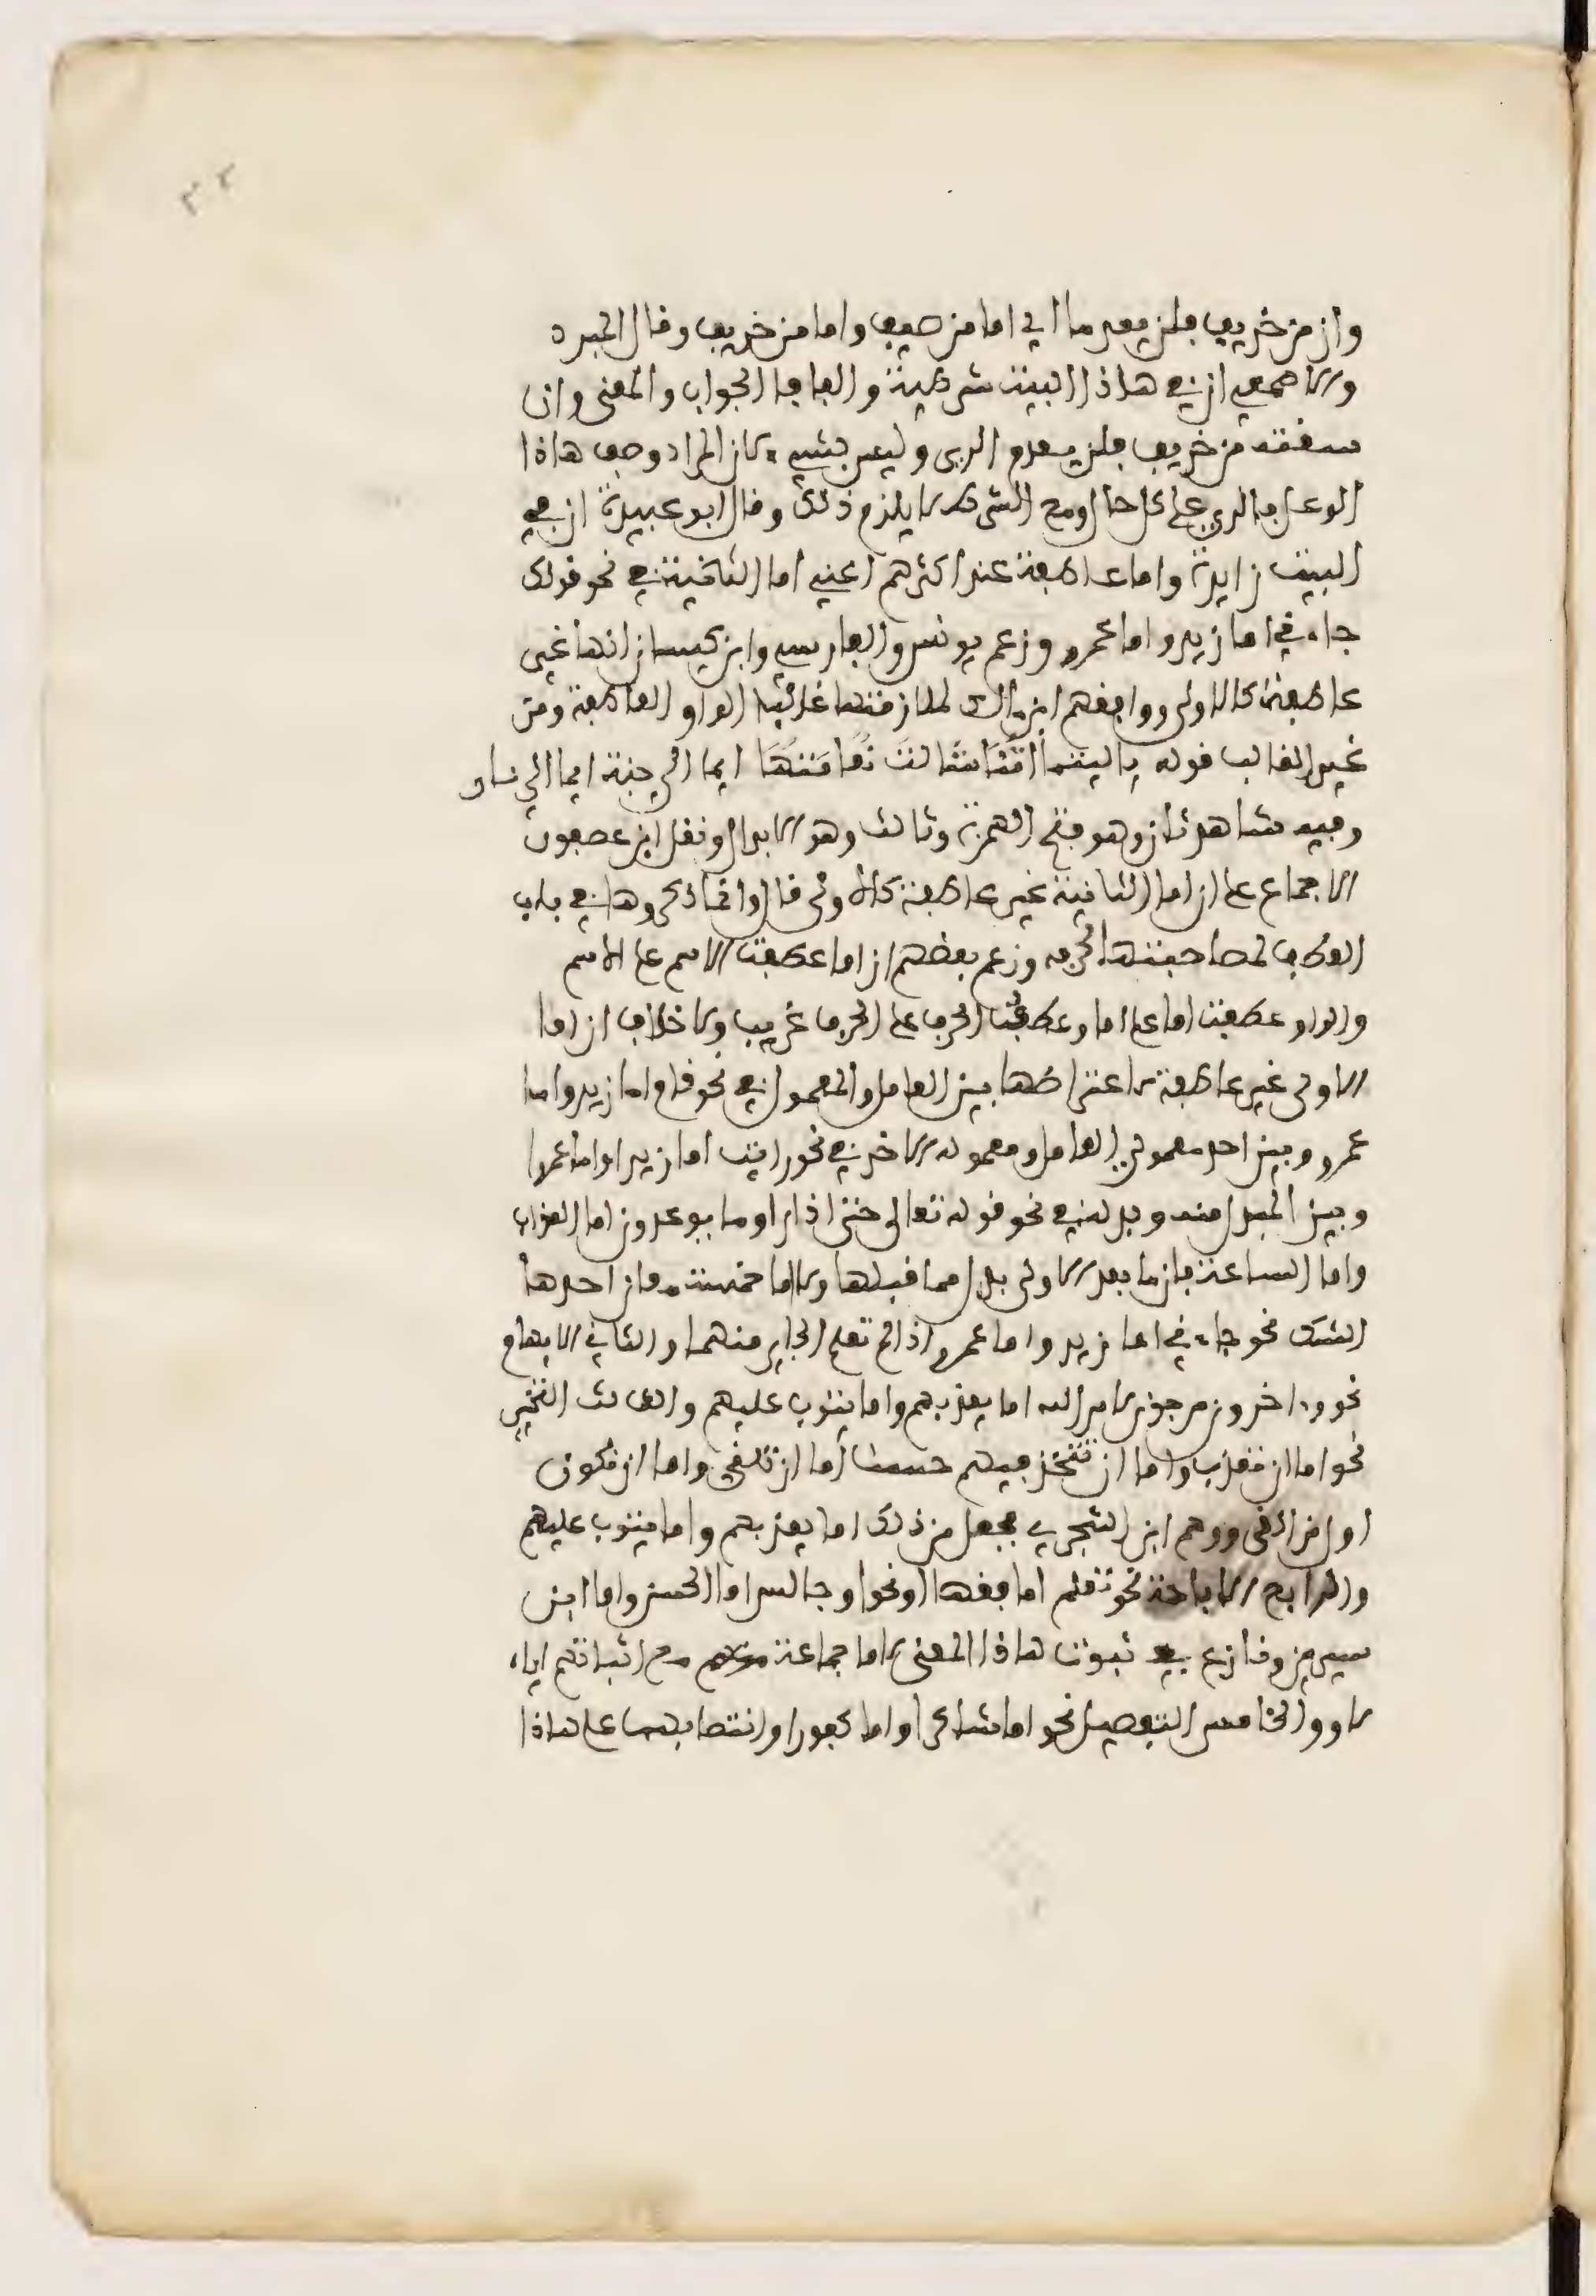 ٣٢
وان من خريف فلن يعدما اي اما من صيف واما من خريف وقال المبرد
والاصمعي ان في هاذا البيت شرطية والفا فا الجواب والمعنى وان
سقته من خريف فلن يعدم الري وليس بشيء لان المراد وصف هاذا
الوعل بالري على كل حال ومع الشرط لا يلزم ذلك وقال ابو عبيدة ان في
البيت زايدة واما عاطفة عند اكثرهم اعني اما الثانية في نحو قولك
جاءني اما زيد واما عمرو وزعم يونس والفارسي وابن كيسان انها غير
عاطفة كالاولى ووافقهم ابن مالك لملازمتها غالبا الواو العاطفة ومن
غير الغالب قوله ياليتما امنا شالت نعامتها ايما الى جنة ايما الى نار
وفيه شاهد ثان وهو فتح الهمزة وثالث وهو الابدال ونقل ابن عصفور
الاجماع على ان اما الثانية غير عاطفة كالاولى قال وانما ذكروها في باب
العطف لمصاحبتها لحرفه وزعم بعضهم ان اما عطفت الاسم على الاسم
والواو عطفت اما على اما وعطف الحرف على الحرف غريب ولا خلاف ان اما
الاولى غير عاطفة لاعتراضها بين العامل والمعمول في نحو قام اما زيد واما
عمرو وبين احد معمولي العامل ومعموله الاخر في نحو رايت اما زيدا واما عمرا
وبين المبدل منه وبدله في نحو قوله تعالى حتى اذا راوا ما يوعدون اما العذاب
واما الساعة فان ما بعد الاولى بدل مما قبلها ولاما خمسة معان احدها
الشك نحو جاءني اما زيد واما عمرو اذا لم تعلم الجاي منهما والثاني الابهام
نحو واخرون مرجون لامر الله اما يعذبهم واما يتوب عليهم والثالث التخيير
نحو اما ان تعذب واما ان تتخذ فيهم حسنا اما ان تلقي واما ان نكون
اول من القى ووهم ابن الشجري فجعل من ذلك اما يعذبهم واما يتوب عليهم
والرابع الاباحة نحو تعلم اما فقها واما نحوا وجالس اما الحسن واما ابن
سيرين ونازع في ثبوت هاذا المعنى لاما جماعة مع اثباتهم اياه
لاو والخامس التفصيل نحو اما شاكرا واما كفورا وانتصابهما على هاذا